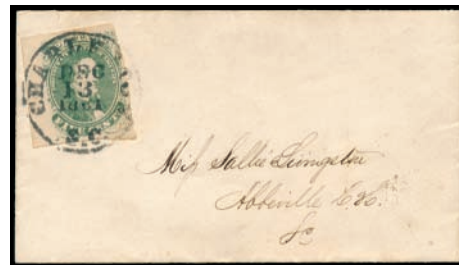 CHARLESTON
DEC
13
1861
S.C
Miſs Sallie Livingston
Abbeville C.H.
So